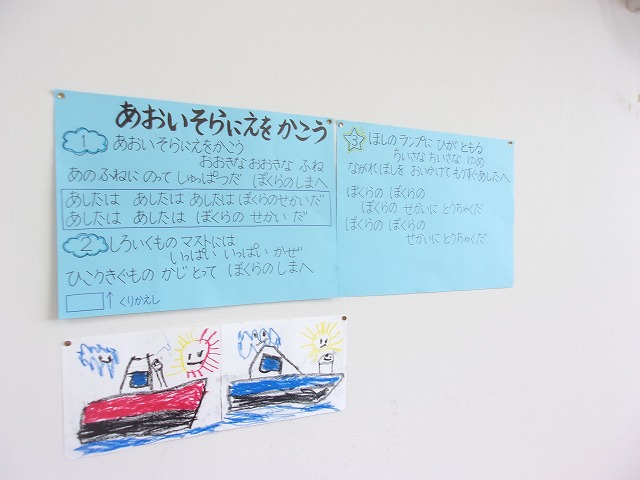 あおいそらにえをかこう
1 あおいそらにえをかこう
おおきな おおきな ふね
あの ふねに のって しゅっぱつだ ぼくらのしまへ
あしたは あしたは あしたは ぼくらのせかいだ
あしたは あしたは ぼくらの せかい だ
2 しろいくもの マストには
いっぱい いっぱい かぜ
ひこうきぐもの かじとって ぼくらの しまへ
↑ くりかえし
3 ほしの ランプに ひが ともる
ちいさな ちいさな ゆめ
ながれぼしを おいかけて もうすぐあしたへ
ぼくらの ぼくらの
ぼくらの せかいに とうちゃくだ
ぼくらの ぼくらの
せかいに とうちゃくだ